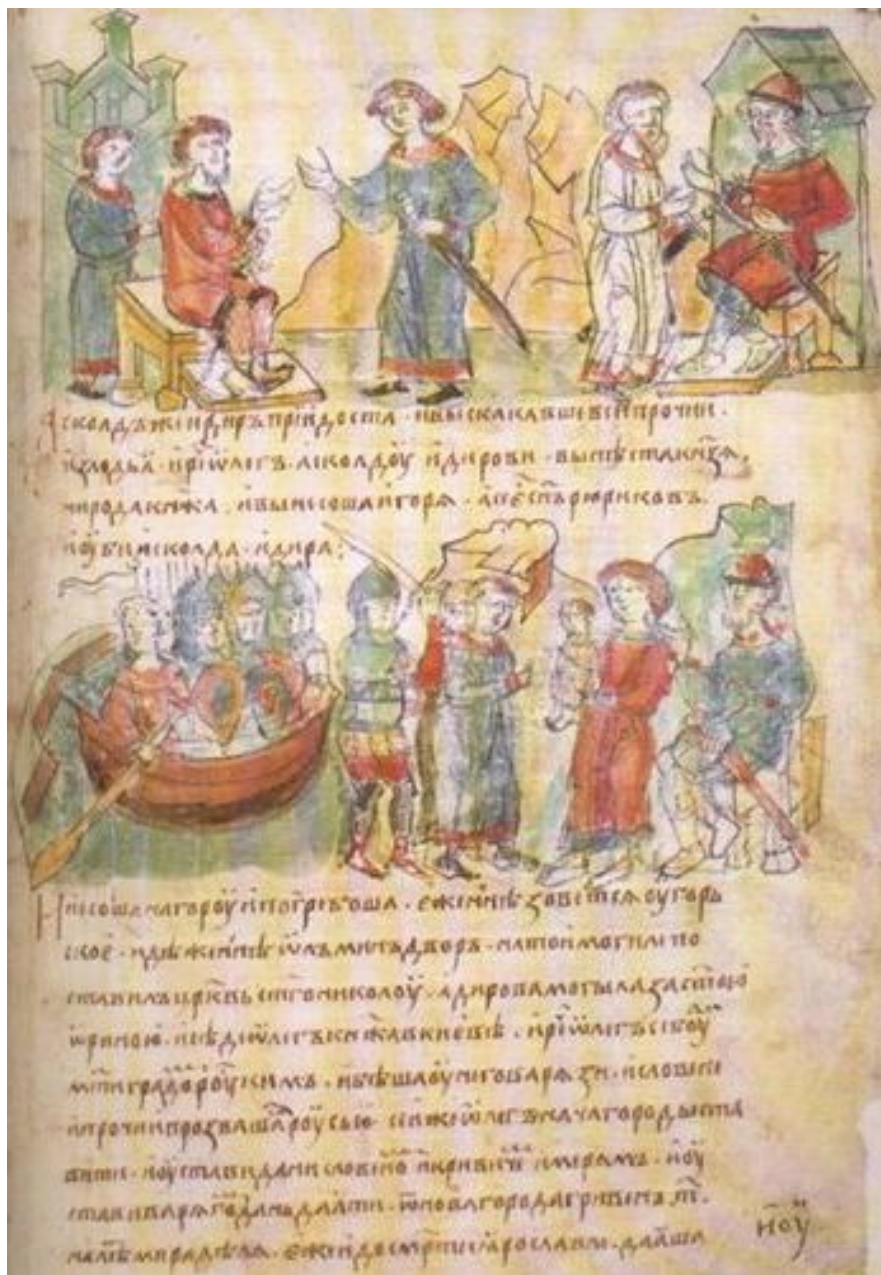 Асколдъ же и Диръ придоста · и выскакавше вси прочии ·
из лодьӕ · и рⷱ҇е ѡлегъ · асколдоу и дирови · вы нѣста кнѧзѧ ·
ни рода кнѧжа · и вынесоша игорѧ · а се есть сн҃ъ рюриковъ ·
и оубиша асколда · и дира :
И несоша на гороу и погребоша · еже нн҃ѣ зоветсѧ оугорь
ское · идѣже нн҃ѣ ѡлъминъ дворъ · на тои могилѣ по
ставилъ цр҃квь ст҃го николоу · а дирова могыла за ст҃ою
ѡриною · и сѣде ѡлегъ кнѧжа в киевѣ · и рⷱ҇е ѡлегъ се боуⷣ
мт҃и градомъ роускимъ · и бѣша оу него варѧзи · и словене
и прочии прозвашасѧ роусью · се же ѡлегъ нача городы ста
вити · и оустави дани словеномъ и кривичемъ и мерѧмъ · и оу
стави варѧгомъ дань даѧти · ѿ новагорода гривенъ т҃ ·
на лѣто мира дѣлѧ · еже и до смрт҃и ӕрославлѧ · даѧше
и оу